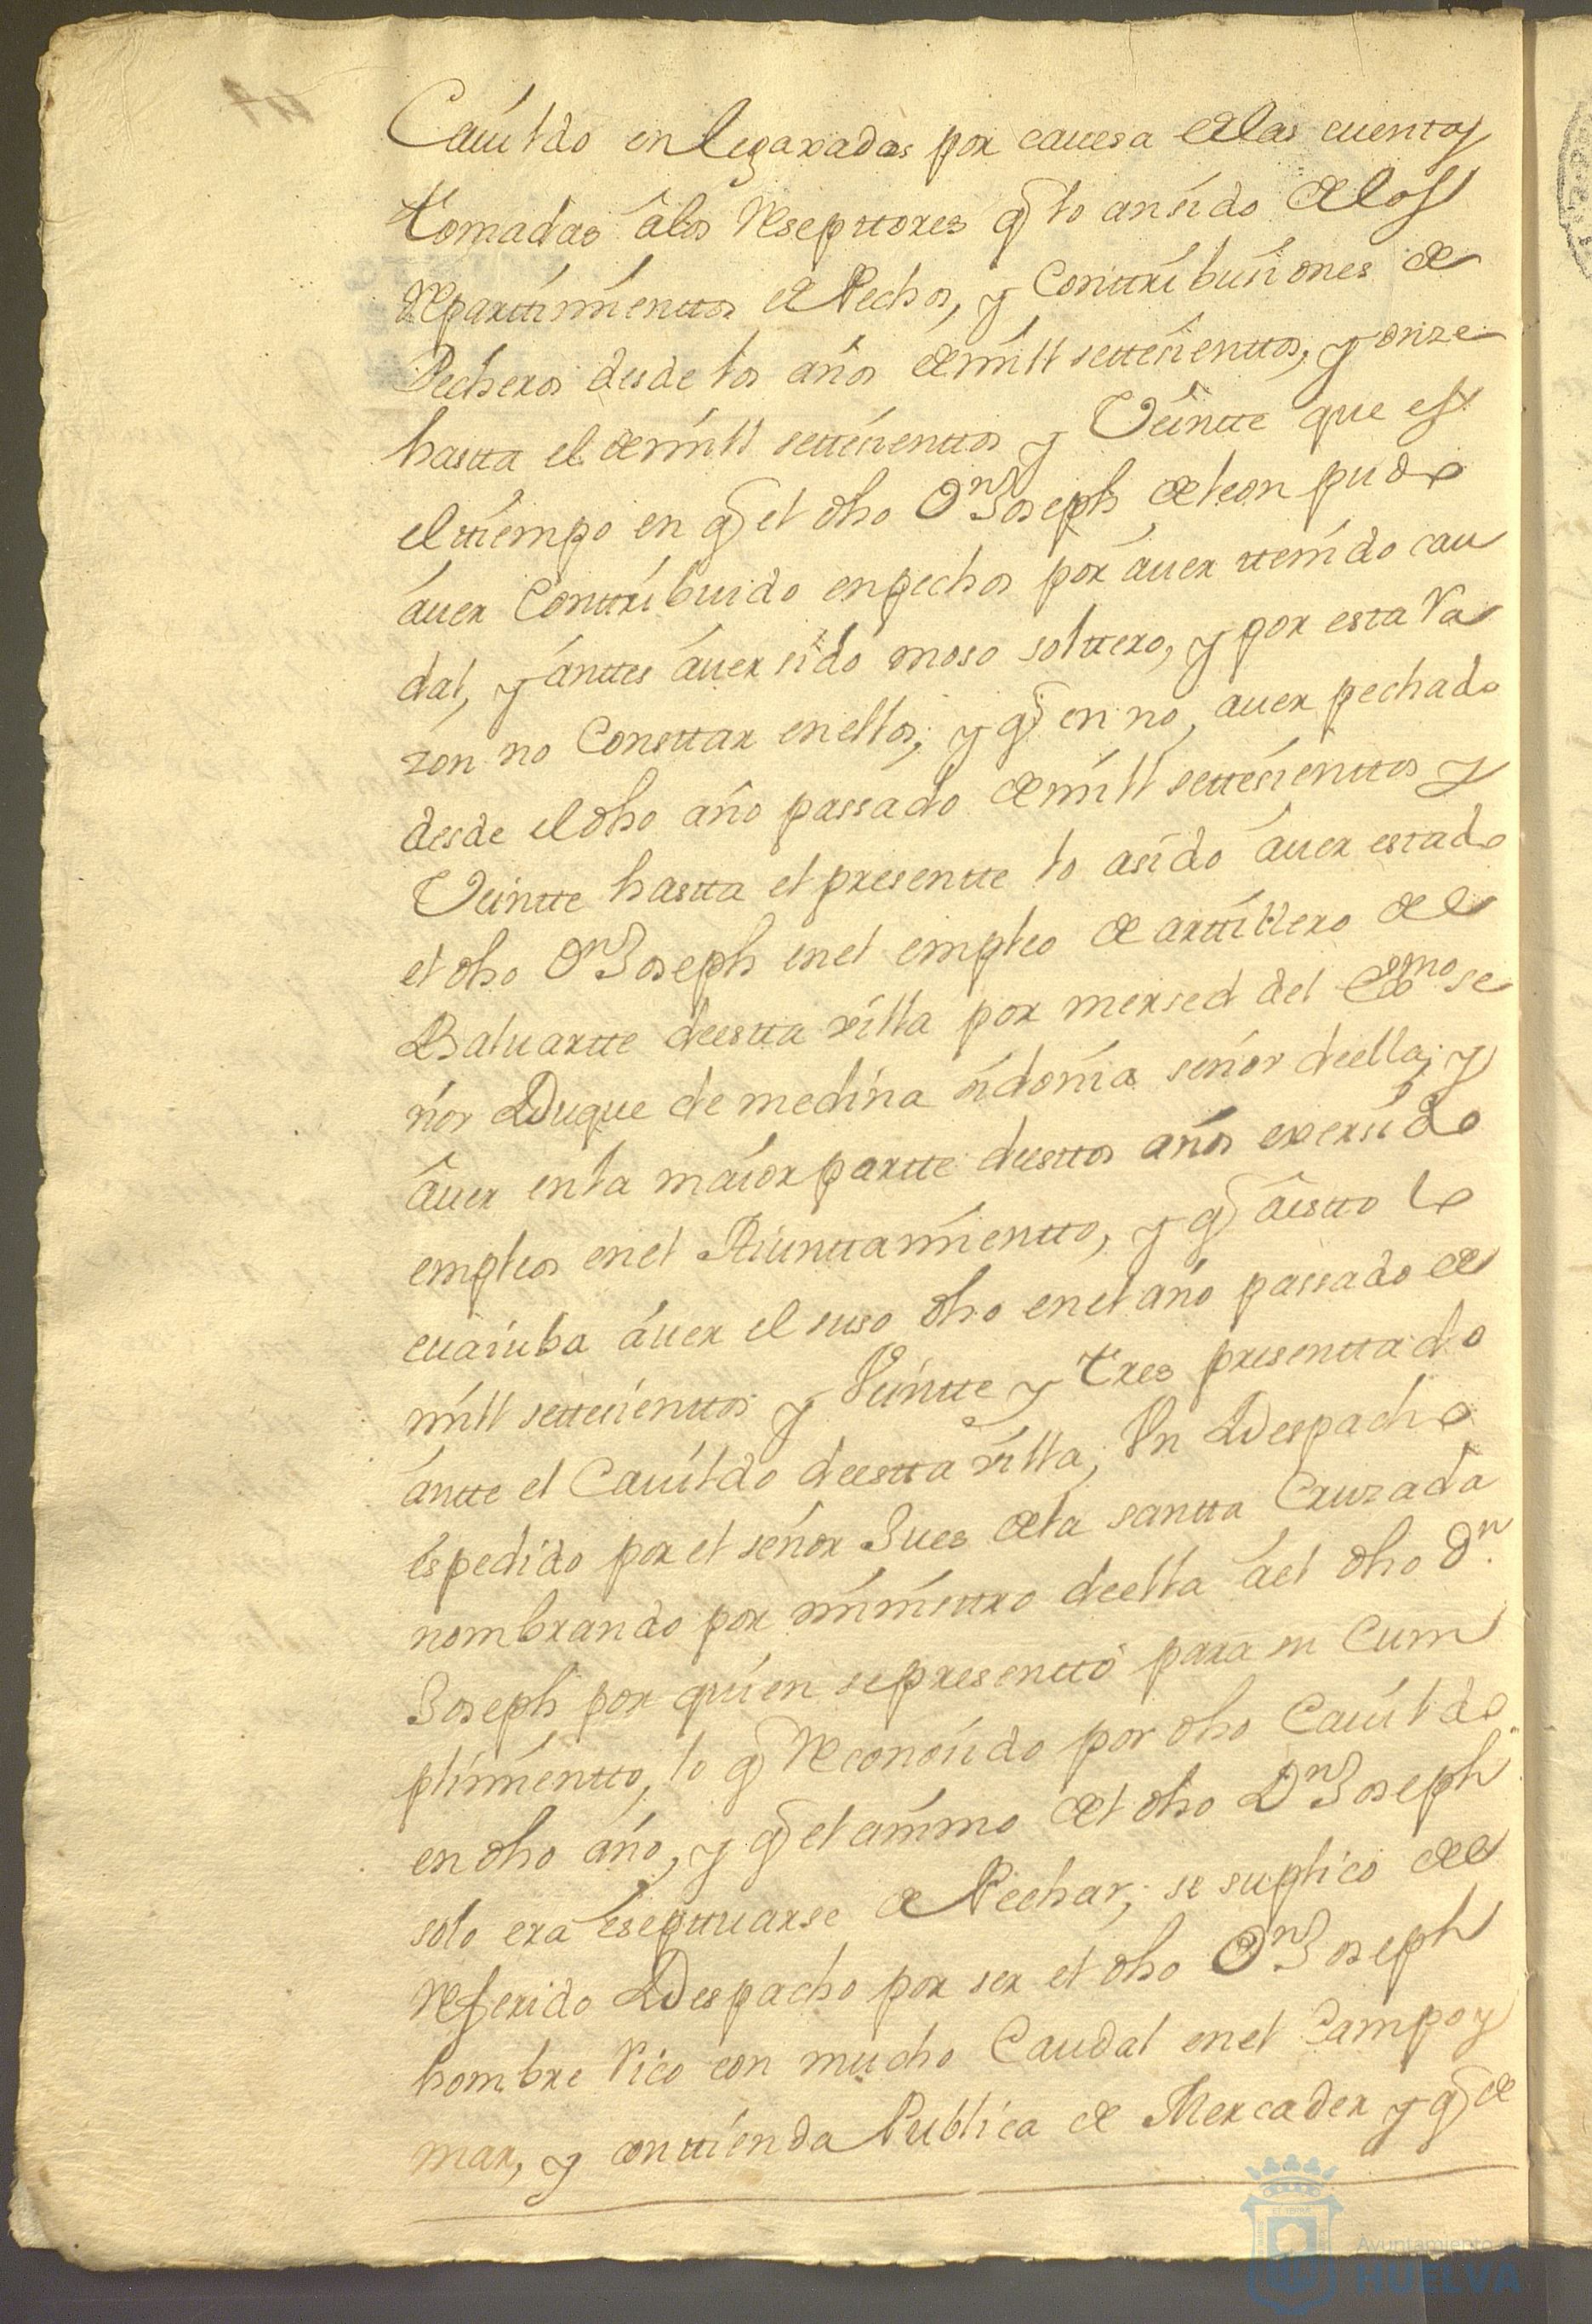 Cauildo enlegaxadas por cauesa de las cuentas
tomadas â los Reseptores q̃ lo an sido de los
Repartimienttos de Pechos, y Conttribusiones de
Pecheros desde los años de mill settesienttos, y onze
hastta el de mill settesienttos y Veintte que es
el ttiempo en q̃ el dho Dn Joseph de leon pudo
áuer Conttribuido en pechos por áuer ttenido cau
dal, y ánttes áuer sido moso solttero, y por esta Ra
zon no Consttar en ellos; y q̃ en no, auer pechado
desde el dho año passado de mill settesienttos y
Veintte hastta el presentte lo a sido áuer estado
el dho Dn Joseph en el empleo de arttillero de el
Baluartte deestta villa por mersed del Exmo se
ñor Duque de medina sidonia señor deella; y
âuer en la maior partte deesttos años exersido
empleos en el Aiunttamientto, y q̃ âestto lo
cuaiuba áuer el suso dho en el año passado de
mill settesienttos y Veintte y tres presenttado
ántte el Cauildo deestta villa, Vn Despacho
éspedido por el señor Jues de la santta Cruzada
nombrando por ministtro deella áel dho Dn.
Joseph por quien se presenttó para su Cum
plimientto, lo q̃ Reconosido por dho Cauildo
en dho año, y q̃ el animo del dho Dn Joseph
solo era ésepttuarse de Pechar; se suplicó de el
Referido Despacho por ser el dho Dn Joseph
hombre Rico con mucho Caudal en el Campo y
mar, y con ttienda Publica de Mercader y q̃ de
Ayuntamiento de
HUELVA